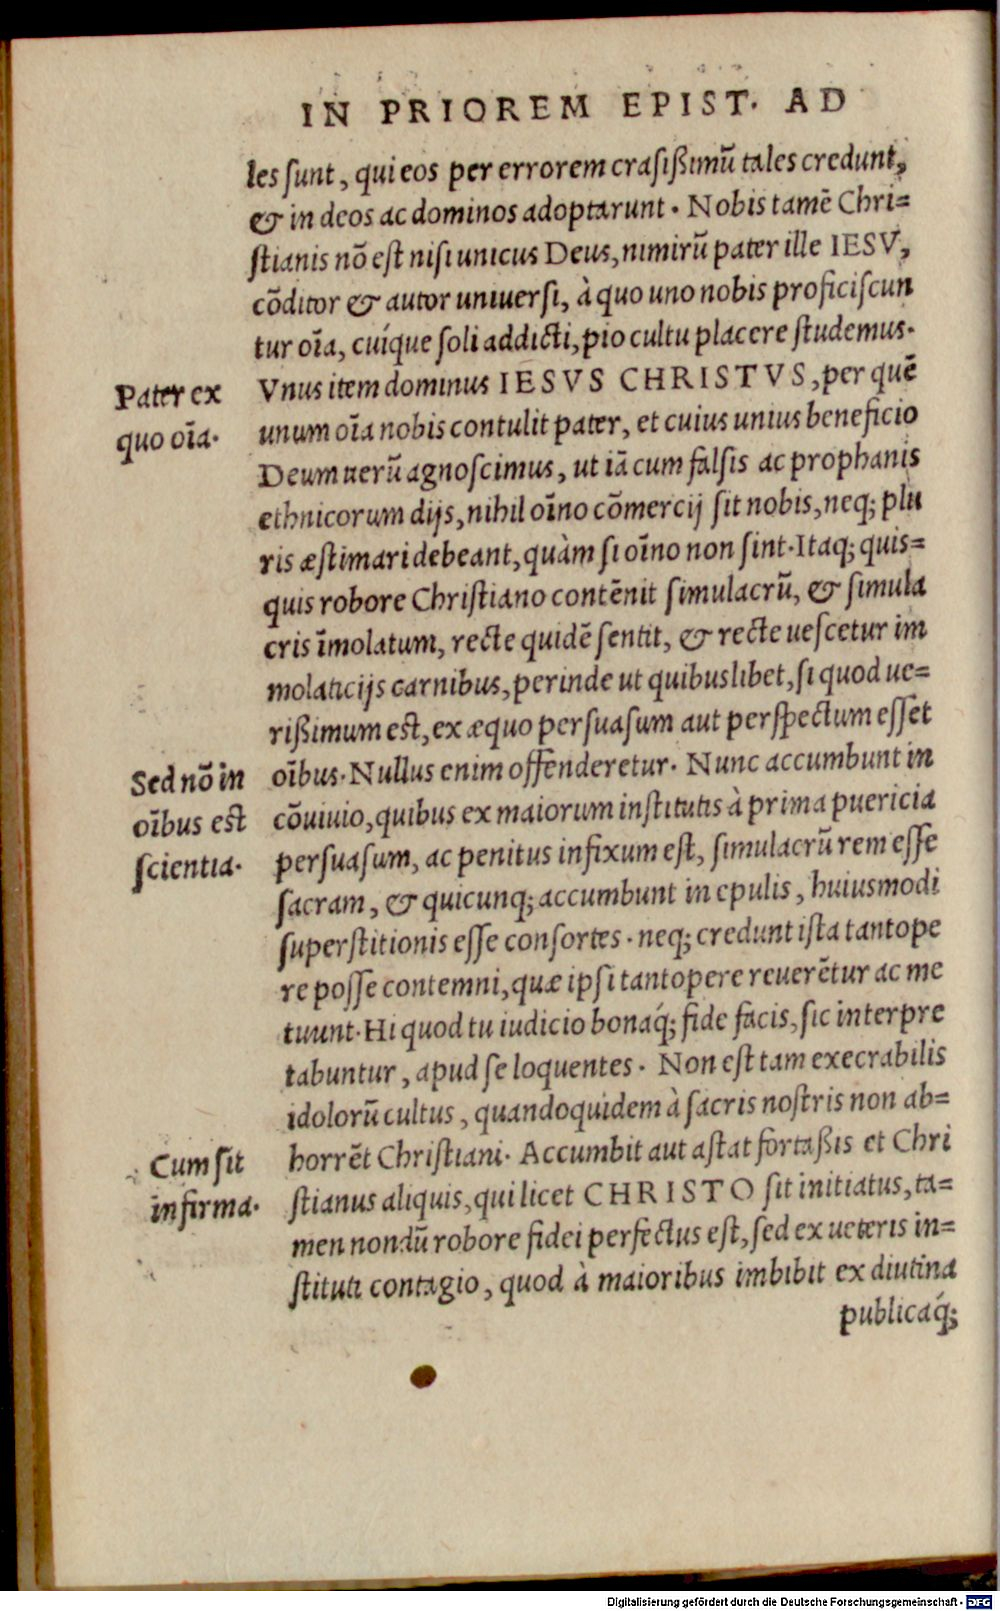 IN PRIOREM EPIST. AD
les ſunt, qui eos per errorem craſiſsimū tales credunt,
& in deos ac dominos adoptarunt. Nobis tamē Chri=
ſtianis nō eſt niſi unicus Deus, nimirū pater ille IESV,
cōditor & autor uniuerſi, à quo uno nobis proficiſcun
tur oīa, cuíque ſoli addicti, pio cultu placere ſtudemus.
Pater ex
quo oīa.
Vnus item dominus IESVS CHRISTVS, per quē
unum oīa nobis contulit pater, et cuius unius beneficio
Deum uerū agnoſcimus, ut iā cum falſis ac prophanis
ethnicorum dijs, nihil oīno cōmercij ſit nobis, neq; plu
ris æſtimari debeant, quàm ſi oīno non ſint. Itaq; quis=
quis robore Chriſtiano contēnit ſimulacrū, & ſimula
cris īmolatum, recte quidē ſentit, & recte ueſcetur im
molaticijs carnibus, perinde ut quibuslibet, ſi quod ue=
rißimum eſt, ex æquo perſuaſum aut perſpectum eſſet
Sed nō in
oībus est
ſcientia.
oībus. Nullus enim offenderetur. Nunc accumbunt in
cōuiuio, quibus ex maiorum inſtitutis à prima puericia
perſuaſum, ac penitus infixum eſt, ſimulacrū rem eſſe
ſacram, & quicunq; accumbunt in epulis, huiusmodi
ſuperſtitionis eſſe conſortes. neq; credunt iſta tantope
re poſſe contemni, quæ ipſi tantopere reuerētur ac me
tuunt. Hi quod tu iudicio bonaq́; fide facis, ſic interpre
tabuntur, apud ſe loquentes. Non eſt tam execrabilis
idolorū cultus, quandoquidem à ſacris noſtris non ab=
Cum ſit
infirma.
horrēt Chriſtiani. Accumbit aut aſtat fortaßis et Chri
ſtianus aliquis, qui licet CHRISTO ſit initiatus, ta=
men nondū robore fidei perfectus eſt, ſed ex ueteris in=
ſtituti contagio, quod à maioribus imbibit ex diutina
publicaq́;
Digitalisierung gefördert durch die Deutsche Forschungsgemeinschaft - DFG